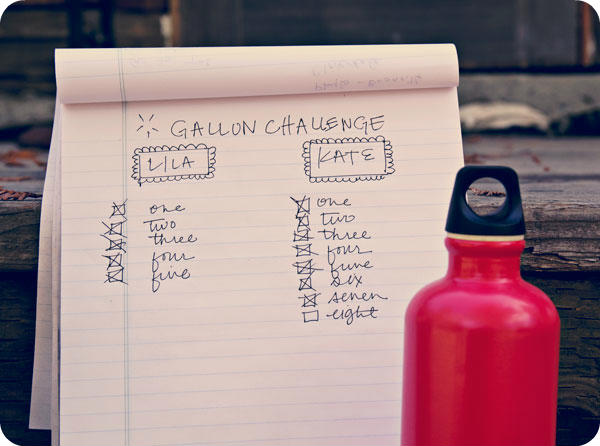 GALLON CHALLENGE
LILA
one
two
three
four
five
KATE
one
two
three
four
five
six
seven
eight